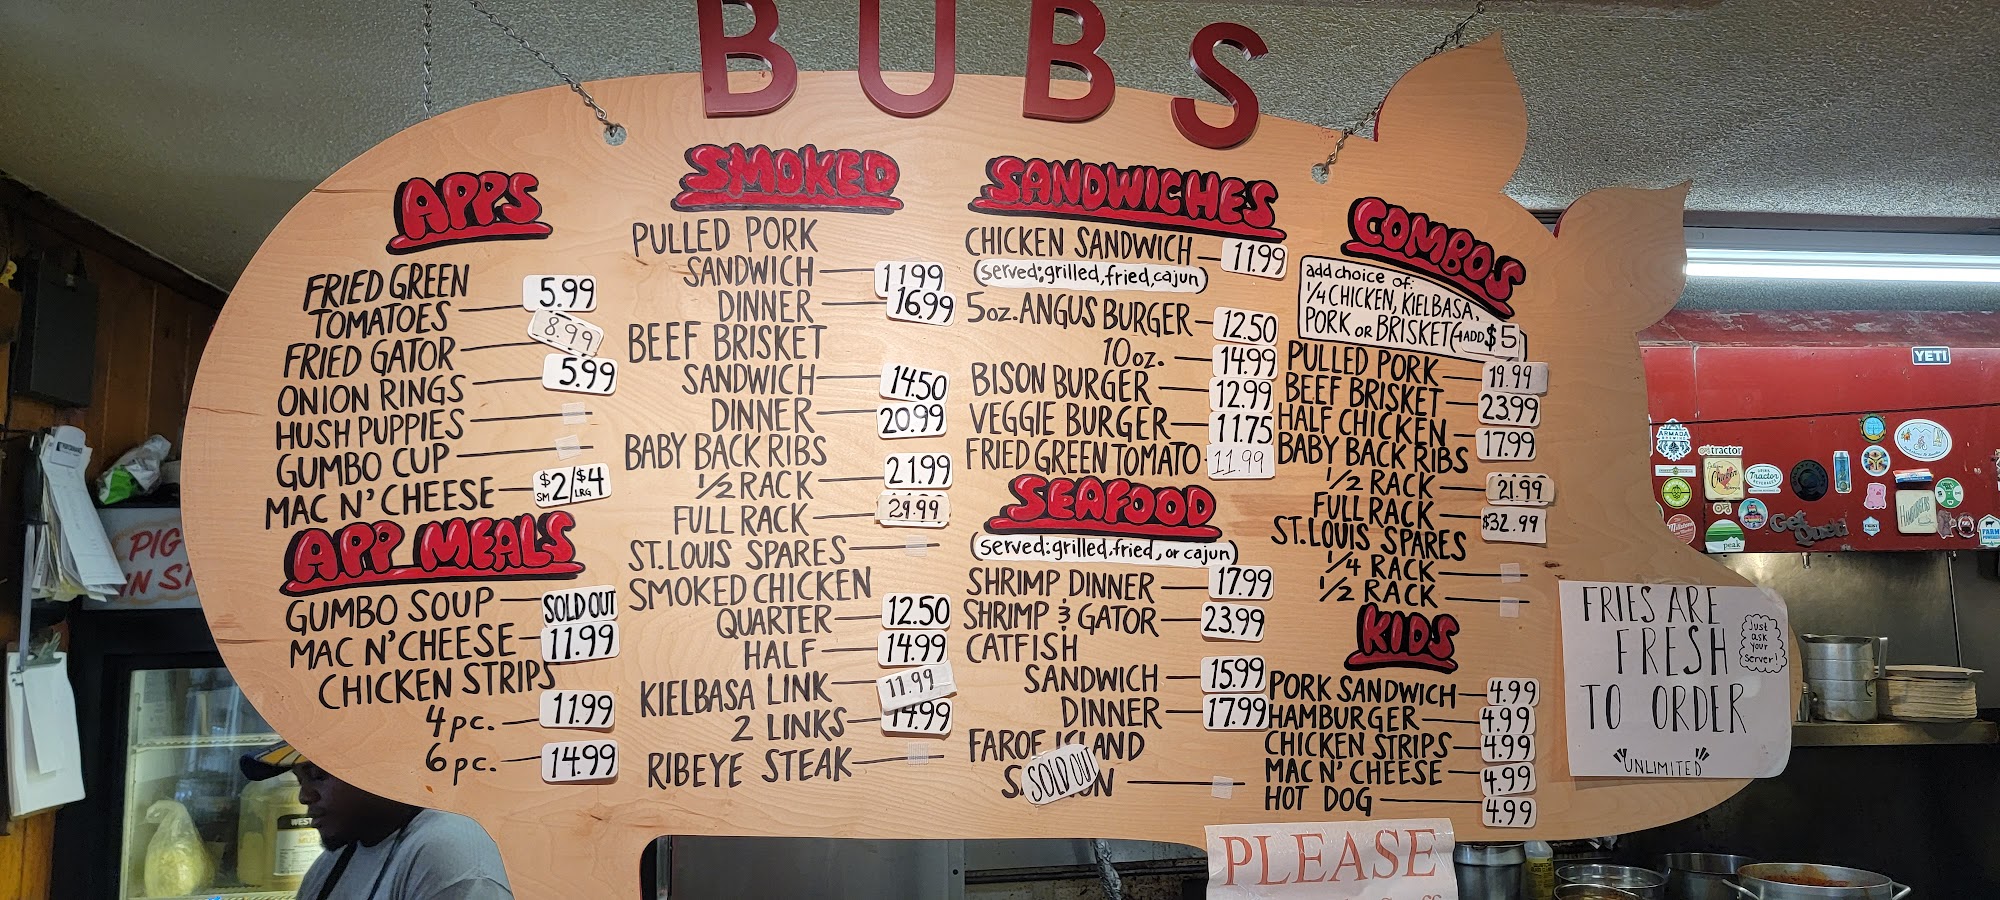 BUBS
APPS
FRIED GREEN
TOMATOES 5.99
FRIED GATOR 8.99
ONION RINGS 5.99
HUSH PUPPIES
GUMBO CUP
MAC N' CHEESE SM $2/$4 LRG
APP MEALS
GUMBO SOUP SOLD OUT
MAC N' CHEESE 11.99
CHICKEN STRIPS
4pc. 11.99
6pc. 14.99
SMOKED
PULLED PORK
SANDWICH 11.99
DINNER 16.99
BEEF BRISKET
SANDWICH 14.50
DINNER 20.99
BABY BACK RIBS
1/2 RACK 21.99
FULL RACK 29.99
ST. LOUIS SPARES
SMOKED CHICKEN
QUARTER 12.50
HALF 14.99
KIELBASA LINK 11.99
2 LINKS 14.99
RIBEYE STEAK
SANDWICHES
CHICKEN SANDWICH 11.99
(served: grilled, fried, cajun)
5oz. ANGUS BURGER 12.50
10oz. 14.99
BISON BURGER 12.99
VEGGIE BURGER 11.75
FRIED GREEN TOMATO 11.99
SEAFOOD
(served: grilled, fried, or cajun)
SHRIMP DINNER 17.99
SHRIMP & GATOR 23.99
CATFISH
SANDWICH 15.99
DINNER 17.99
FAROE ISLAND
SOLD OUT
COMBOS
add choice of:
1/4 CHICKEN, KIELBASA,
PORK or BRISKET (+ADD $5)
PULLED PORK 19.99
BEEF BRISKET 23.99
HALF CHICKEN 17.99
BABY BACK RIBS
1/2 RACK 21.99
FULL RACK $32.99
ST. LOUIS SPARES
1/4 RACK
1/2 RACK
KIDS
PORK SANDWICH 4.99
HAMBURGER 4.99
CHICKEN STRIPS 4.99
MAC N' CHEESE 4.99
HOT DOG 4.99
FRIES ARE
FRESH
TO ORDER
"UNLIMITED"
Just
ask
your
server!
PLEASE
YETI
PIG
tractor
Tractor
peak
ARMADA
WEST